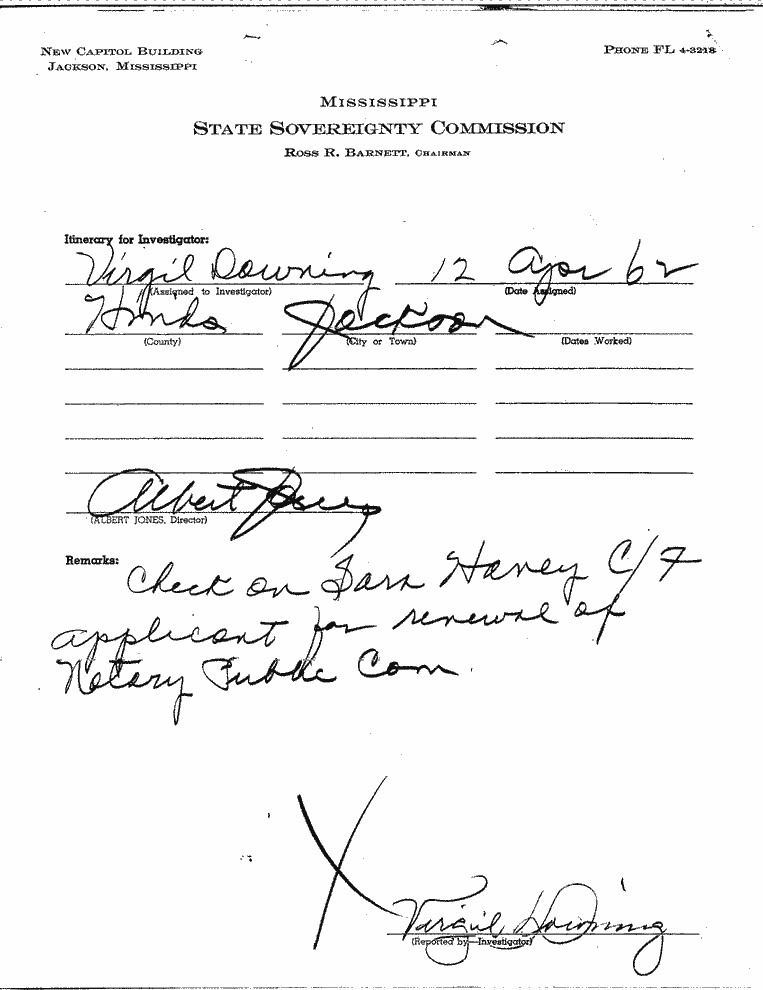 NEW CAPITOL BUILDING
JACKSON, MISSISSIPPI
PHONE FL 4-3218
MISSISSIPPI
STATE SOVEREIGNTY COMMISSION
ROSS R. BARNETT, CHAIRMAN
Itinerary for Investigator:
Virgil Downing 12 Apr 62
(Assigned to Investigator) (Date Assigned)
Hinds Jackson
(County) (City or Town) (Dates Worked)
Albert Jones
(ALBERT JONES, Director)
Remarks:
Check on Sara Harvey C/F
applicant for renewal of
Notary Public Com.
Virgil Downing
(Reported by—Investigator)